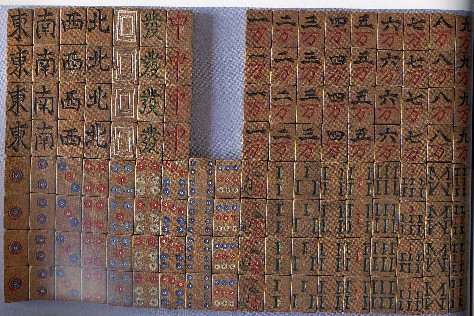 東 南 西 北 發 中 一万 二万 三万 四万 五万 六万 七万 八万 九
東 南 西 北 發 中 一万 二万 三万 四万 五万 六万 七万 八万 九
東 南 西 北 發 中 一万 二万 三万 四万 五万 六万 七万 八万 九
東 南 西 北 發 中 一万 二万 三万 四万 五万 六万 七万 八万 九